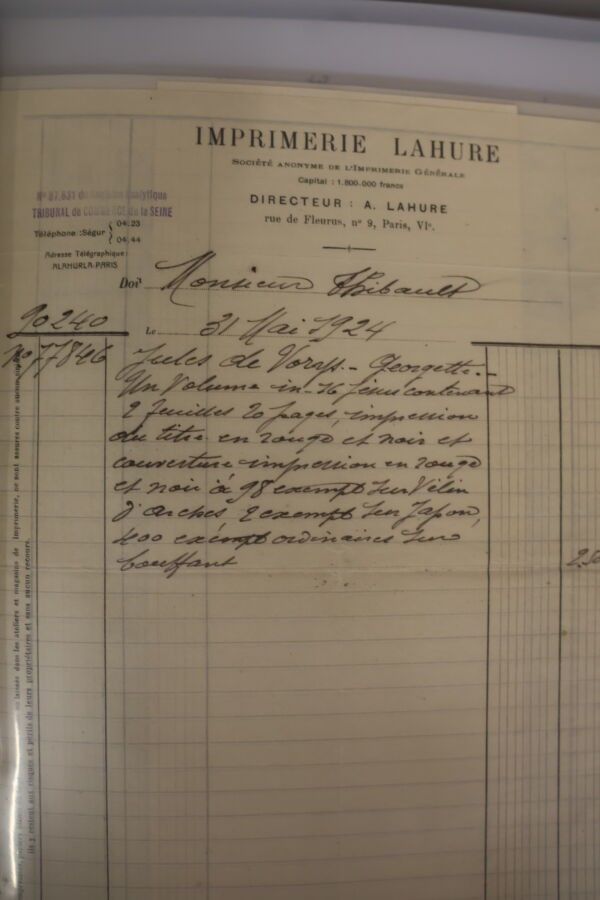 IMPRIMERIE LAHURE
SOCIÉTÉ ANONYME DE L'IMPRIMERIE GÉNÉRALE
Capital : 1.800.000 francs
DIRECTEUR : A. LAHURE
rue de Fleurus, nº 9, Paris, VIe.
Nº 87.631 du Registre Analytique
TRIBUNAL de COMMERCE de la SEINE
Téléphone : Ségur { 04.23
04.44
Adresse Télégraphique :
ALAHURLA-PARIS
Doit Monsieur Thibault
90240
Le 31 Mai 1924
No 77846 Jules de Vorys - Georgette -
Un Volume in-16 Jésus contenant
2 feuilles 20 pages, impression
du titre en rouge et noir et
couverture impression en rouge
et noir à 98 exempt sur Vélin
d'arches, 2 exempt sur Japon,
400 exempt ordinaires sur
bouffant
laissés dans les ateliers et magasins de Imprimerie, ne sont assurés contre aucun
ils y restent aux risques et périls de leurs propriétaires et sans aucun recours.